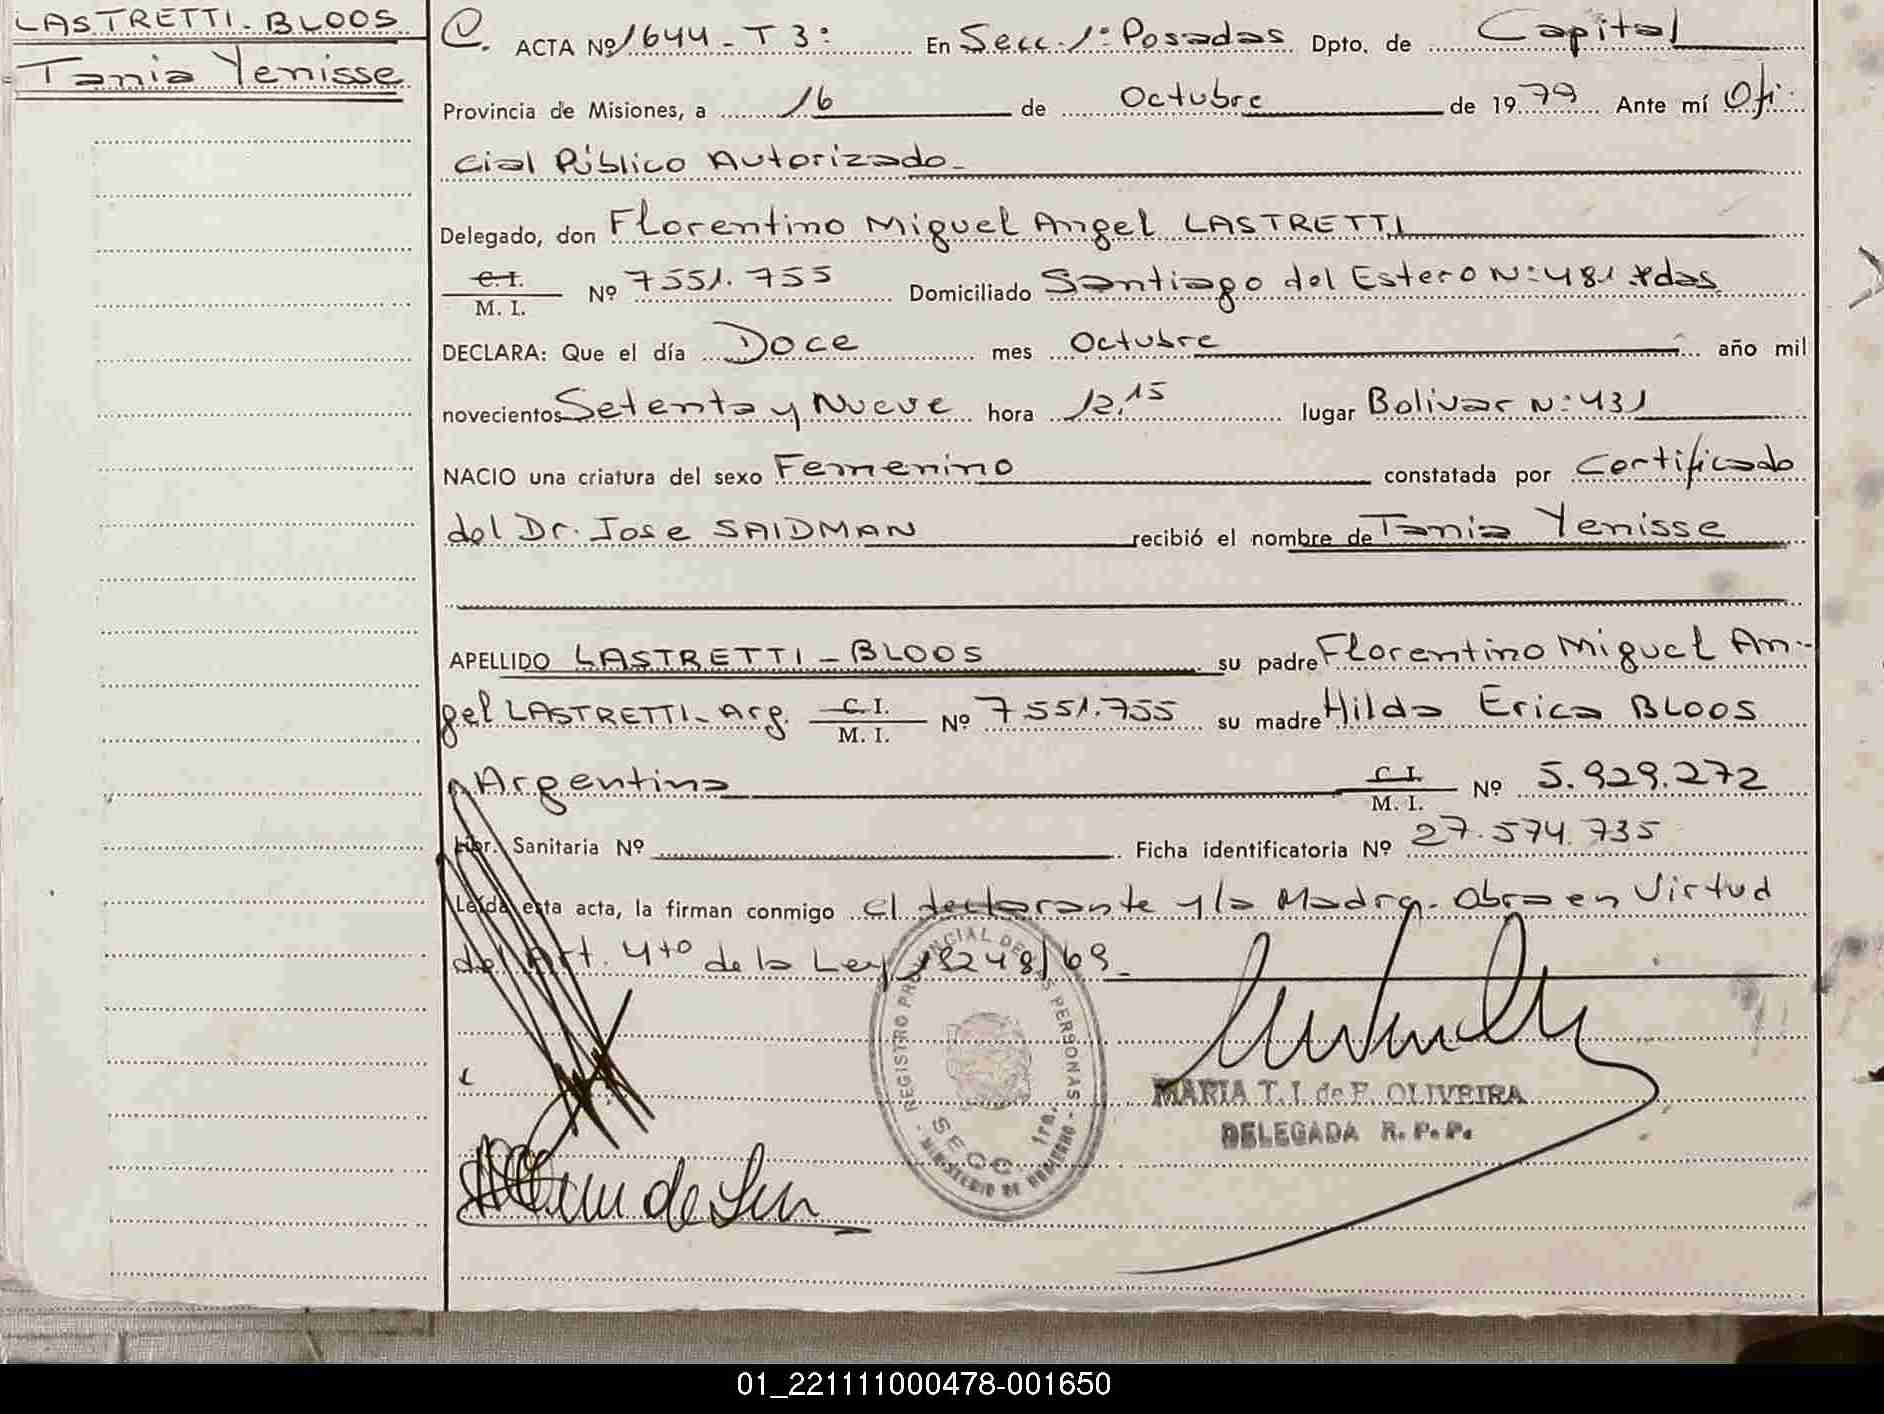 LASTRETTI - BLOOS
Tania Yenisse
C. ACTA Nº 1644 - T 3: En Secc. 1º Posadas Dpto. de Capital
Provincia de Misiones, a 16 de Octubre de 1979 Ante mí Ofi-
cial Público Autorizado -
Delegado, don Florentino Miguel Angel LASTRETTI
C.I. / M. I. Nº 7551.755 Domiciliado Santiago del Estero N: 481 Pdas
DECLARA: Que el día Doce mes Octubre año mil
novecientos Setenta y Nueve hora 12,15 lugar Bolivar N: 431
NACIO una criatura del sexo Femenino constatada por Certificado
del Dr. Jose SAIDMAN recibió el nombre de Tania Yenisse
APELLIDO LASTRETTI - BLOOS su padre Florentino Miguel An-
gel LASTRETTI - Arg. C.I. / M. I. Nº 7551.755 su madre Hilda Erica BLOOS
Argentina C.I. / M. I. Nº 5.929.272
Libr. Sanitaria Nº Ficha identificatoria Nº 27.574.735
Leída esta acta, la firman conmigo el declarante y la Madre. Obra en Virtud
del Art. 4to de la Ley 18248/69.
REGISTRO PROVINCIAL DE LAS PERSONAS
SECC. 1ra.
MINISTERIO DE GOBIERNO
MARIA T. I. de F. OLIVEIRA
DELEGADA R. P. P.
01_221111000478-001650